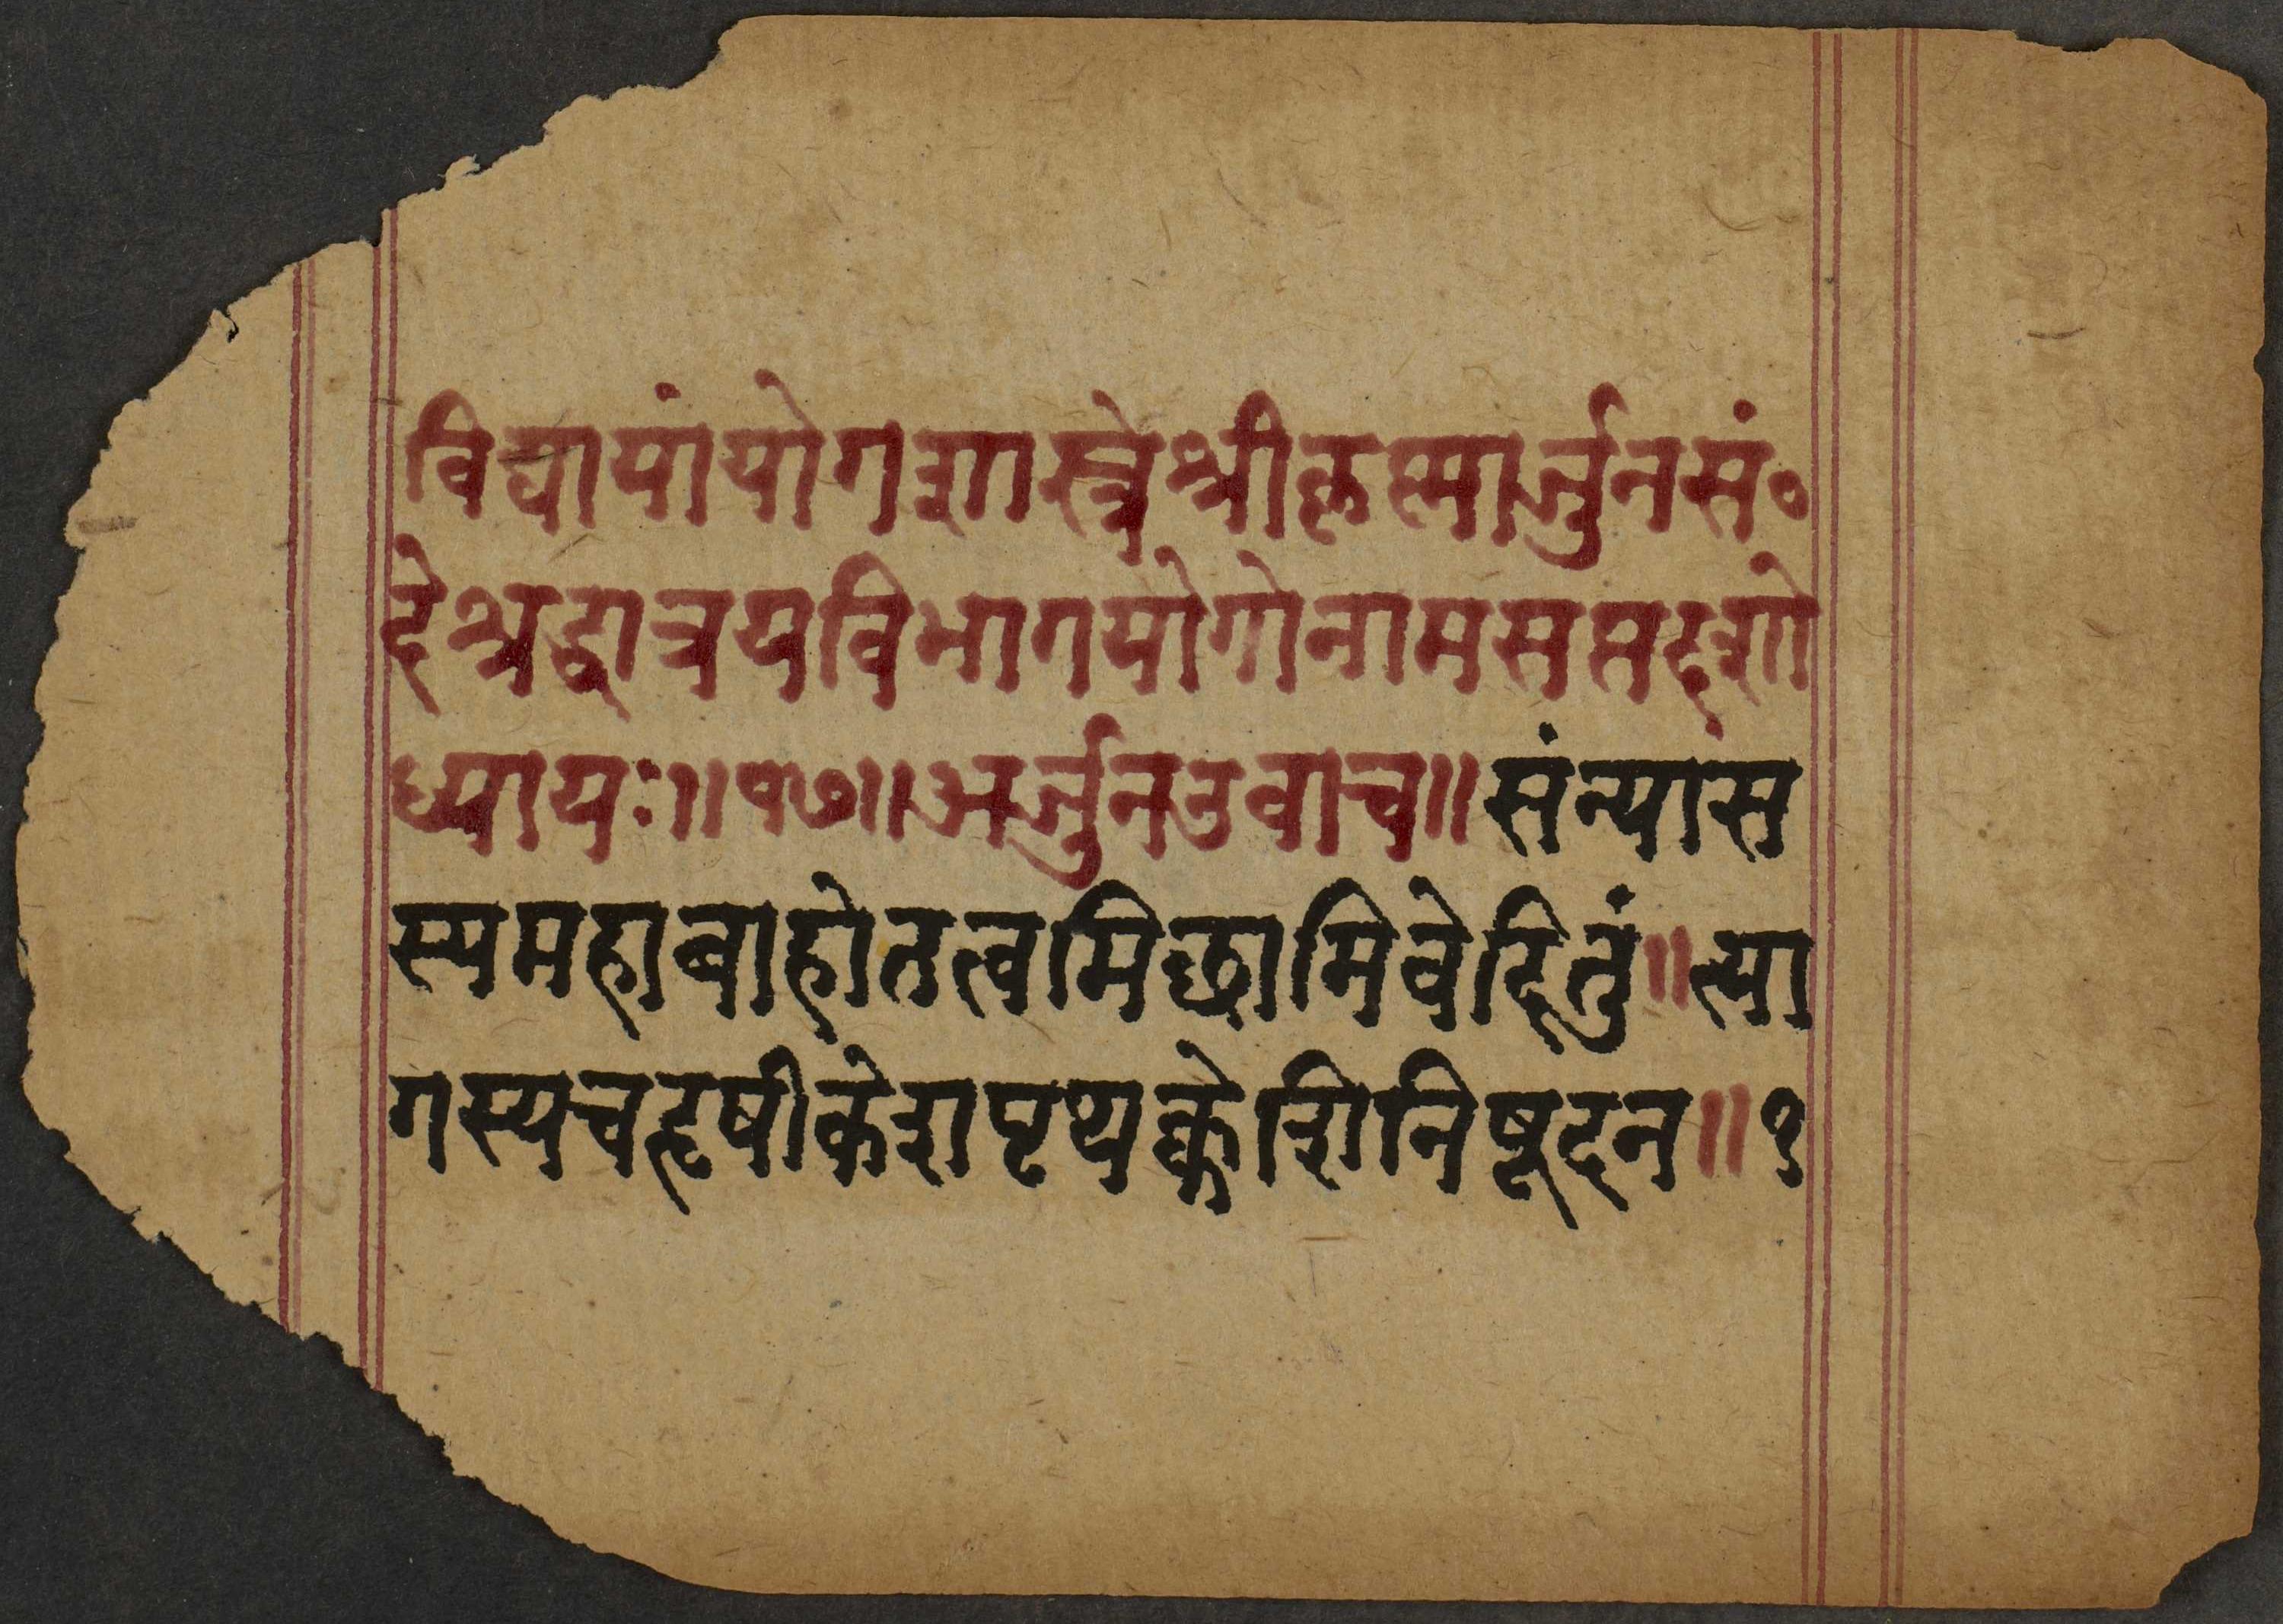 विद्यायांयोगशास्त्रेश्रीकृष्णार्जुनसं०
देश्रद्धात्रयविभागयोगोनामसप्तदशो
ध्यायः॥१७॥अर्जुनउवाच॥संन्यास
स्यमहाबाहोतत्वमिछामिवेदितुं॥त्या
गस्यचहृषीकेशपृथक्केशिनिषूदन॥१